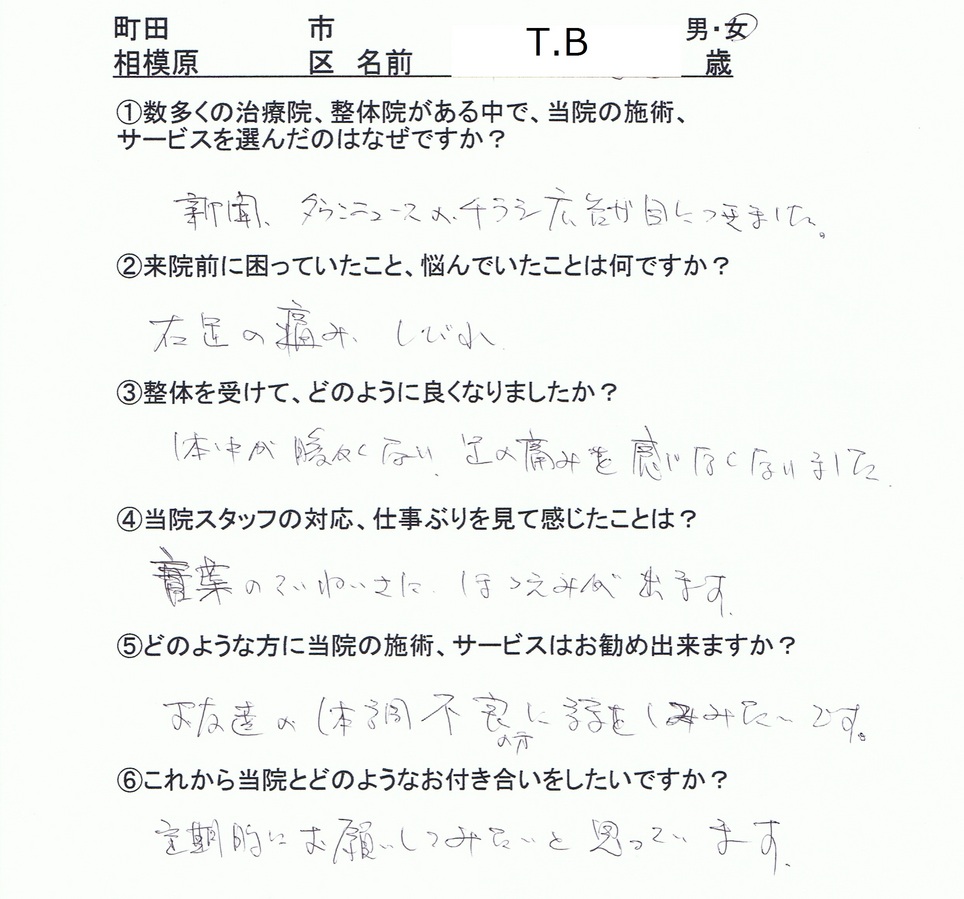 町田 市 男・女
相模原 区 名前 T.B 歳
①数多くの治療院、整体院がある中で、当院の施術、
サービスを選んだのはなぜですか？
新聞、タウンニュースのチラシ広告が目につきました。
②来院前に困っていたこと、悩んでいたことは何ですか？
右足の痛み、しびれ
③整体を受けて、どのように良くなりましたか？
体中が暖かくなり、足の痛みを感じなくなりました
④当院スタッフの対応、仕事ぶりを見て感じたことは？
言葉のていねいさに ほほえみが出ます。
⑤どのような方に当院の施術、サービスはお勧め出来ますか？
お友達の体調不良に話をしてみたいです。
の方
⑥これから当院とどのようなお付き合いをしたいですか？
定期的にお願いしてみたいと思っています。